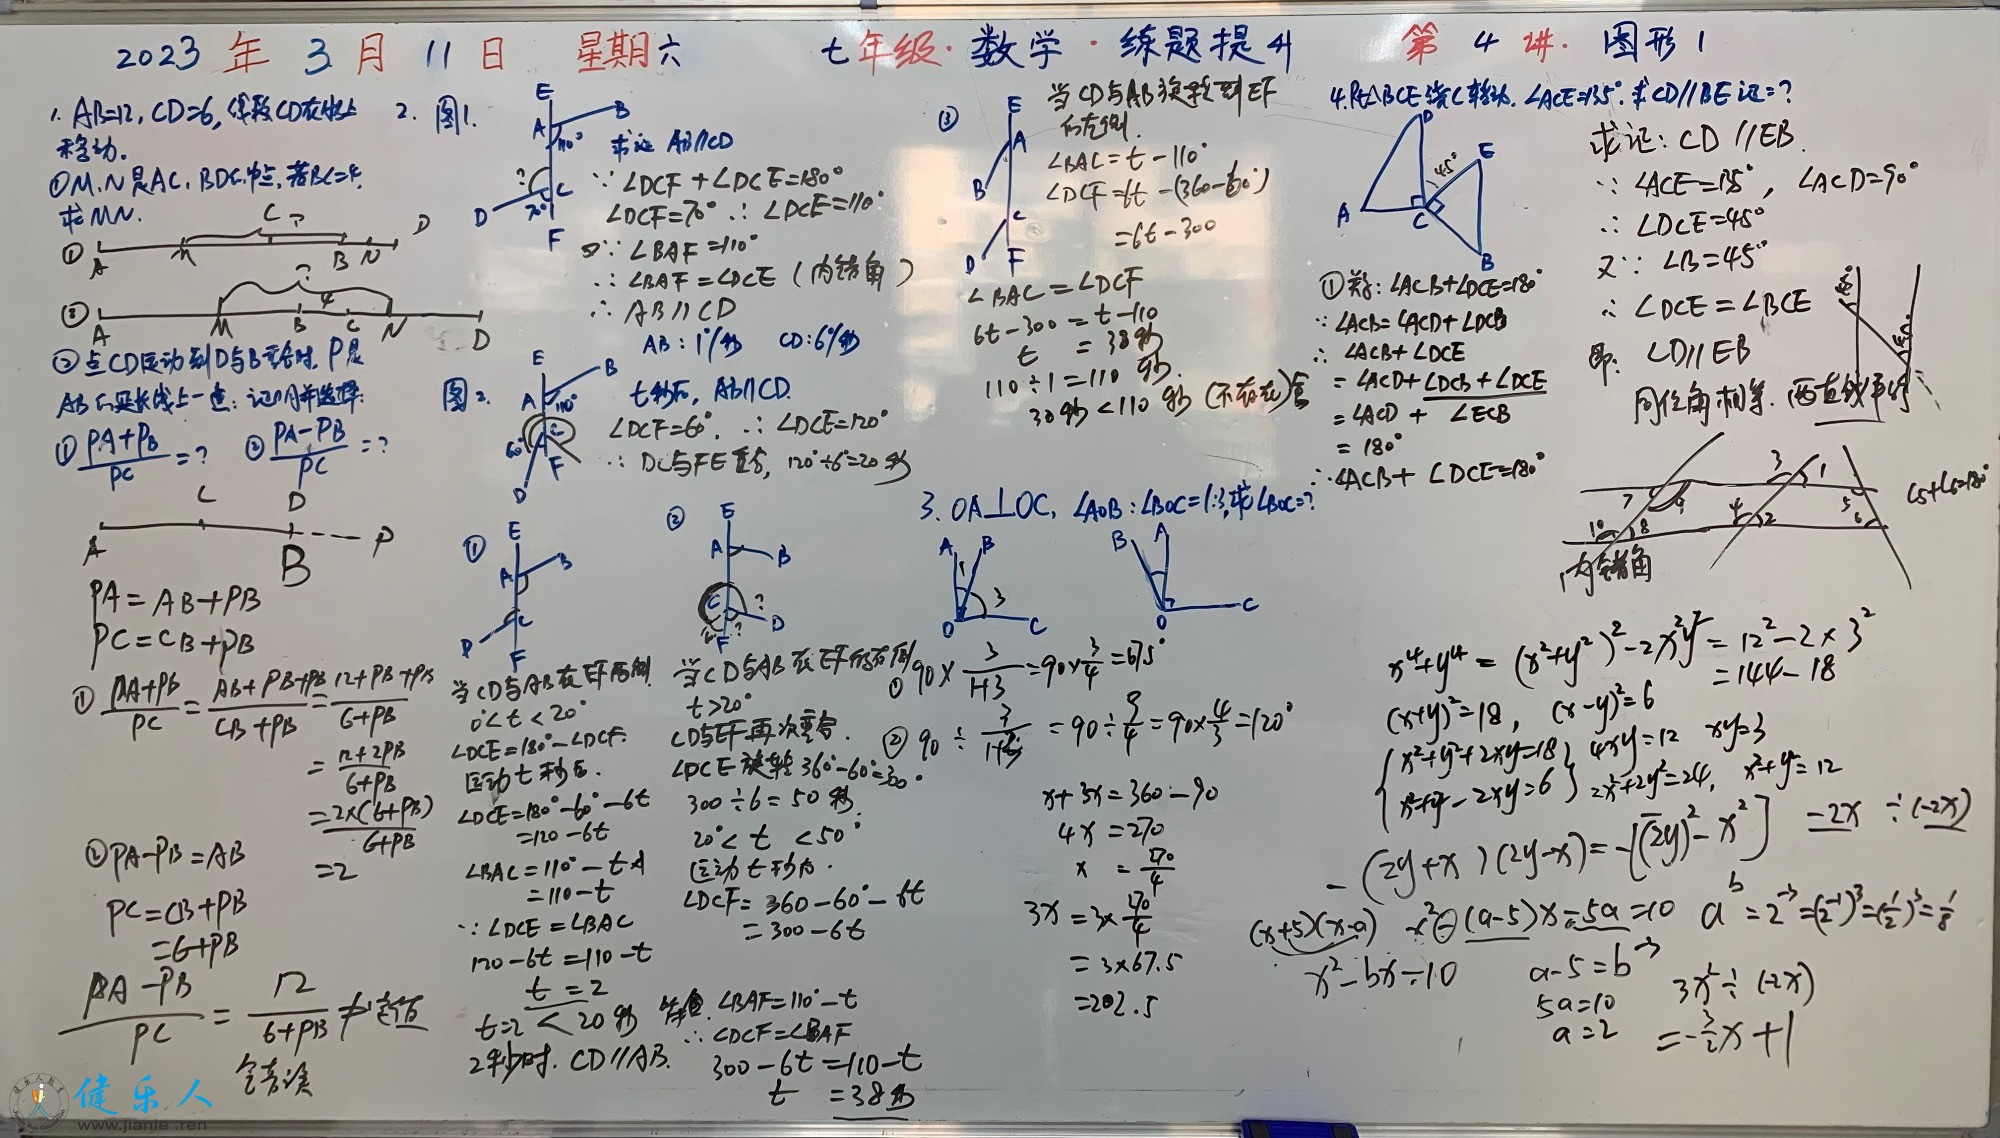 2023 年 3 月 11 日 星期六 七年级·数学·练题提升 第 4 讲·图形1
1. AB=12, CD=6, 线段CD在线上
移动.
①M.N是AC.BD的中点,若BC=4,
求MN.
① A M C ? B N D
② A M ? B 4 C N D
②点CD运动到D与B重合时.P是
AB的延长线上一点:
① PA+PB/PC =? ② PA-PB/PC =?
A C D B P
PA=AB+PB
PC=CB+PB
① PA+PB/PC = AB+PB+PB/CB+PB = 12+PB+PB/6+PB
= 12+2PB/6+PB
= 2×(6+PB)/6+PB
=2
②PA-PB=AB
PC=CB+PB
=6+PB
PA-PB/PC = 12/6+PB ≠定值
错误
2. 图1.
E A B 110° ? C D 70° F
求证 AB//CD
∵∠DCF+∠DCE=180°
∠DCF=70° ∴∠DCE=110°
又∵∠BAF=110°
∴∠BAF=∠DCE (内错角)
∴AB//CD
AB:1°/秒 CD:6°/秒
图2.
E A B 110° C 60° F D
t秒后, AB//CD.
∠DCF=60°. ∴∠DCE=120°
∴DC与FE重合, 120°÷6°=20秒
①
E A B C D F
当CD与AB在EF两侧
0°<t<20°
∠DCE=180°-∠DCF.
运动t秒后.
∠DCE=180°-60°-6t
=120-6t
∠BAC=110°-t
=110-t
∵∠DCE=∠BAC
120-6t=110-t
t=2
t=2<20秒
2秒时. CD//AB.
②
E A B C ? D F ?
当CD与AB在EF的右侧
t>20°
CD与EF再次重合.
∠DCE旋转360°-60°=300°
300÷6=50秒.
20°<t<50°
运动t秒后.
∠DCF=360-60°-6t
=300-6t
∠BAF=110°-t
∴∠DCF=∠BAF
300-6t=110-t
t=38秒
③
E A B C D F
当CD与AB旋转到EF
的左侧.
∠BAC=t-110°
∠DCF=6t-(360-60°)
=6t-300
∠BAC=∠DCF
6t-300=t-110
t=38秒
110÷1=110秒.
38秒<110秒 (不存在)
3. OA⊥OC, ∠AOB:∠BOC=1:3,求∠BOC=?
A B 1 3 O C
B A O C
① 90×3/1+3=90×3/4=67.5°
② 90÷3/1+3=90÷3/4=90×4/3=120°
x+3x=360-90
4x=270
x=270/4
3x=3×270/4
=3×67.5
=202.5
4.Rt△BCE绕C转动. ∠ACE=135°.求CD//BE 证=?
D E 45° A C B
①关系:∠ACB+∠DCE=180°
∵∠ACB=∠ACD+∠DCB
∴∠ACB+∠DCE
=∠ACD+∠DCB+∠DCE
=∠ACD+∠ECB
=180°
∴∠ACB+∠DCE=180°
求证: CD//EB.
∵∠ACE=135°, ∠ACD=90°
∴∠DCE=45°
又∵∠B=45°
∴∠DCE=∠BCE
即: CD//EB
同位角相等.两直线平行
7 9 10 8 3 1 4 2 5 6
∠5+∠6=180°
内错角
x⁴+y⁴=(x²+y²)²-2x²y²=12²-2×3²
=144-18
(x+y)²=18, (x-y)²=6
x²+y²+2xy=18 4xy=12 xy=3
x²+y²-2xy=6 2x²+2y²=24, x²+y²=12
-(2y+x)(2y-x)=-[(2y)²-x²] -2x÷(-2x)
(x+5)(x-a) x²-(a-5)x-5a=10 a^b=2⁻³=(2⁻¹)³=(1/2)³=1/8
x²-bx-10
a-5=b -3
5a=10
a=2
3x²÷(-2x)
=-3/2x+1
健乐人
www.jianle.ren